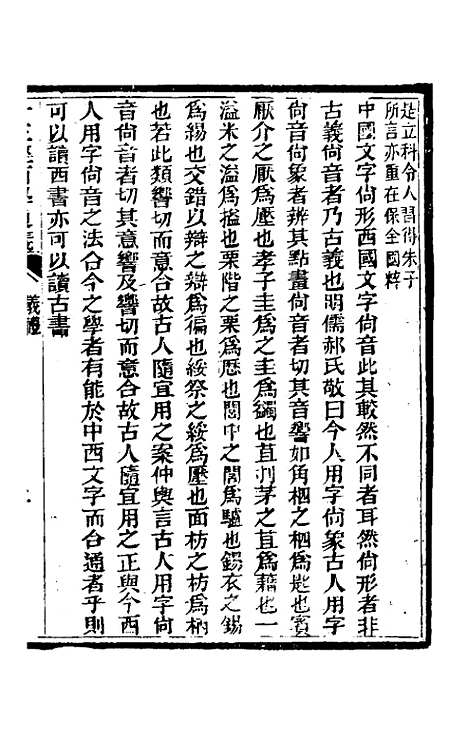 是立科令人習得朱子
所言亦重在保全國粹
中國文字尙形西國文字尙音此其較然不同者耳然尙形者非
古義尙音者乃古義也明儒郝氏敬曰今人用字尙象古人用字
尙音尙象者辨其點畫尙音者切其音響如角柶之柶爲匙也賓
厭介之厭爲壓也孝子圭爲之圭爲蠲也苴刌茅之苴爲藉也一
溢米之溢爲搤也栗階之栗爲歷也閭中之閭爲驢也錫衣之錫
爲緆也交錯以辯之辯爲徧也綏祭之綏爲壓也面枋之枋爲柄
也若此類響切而意合故古人隨宜用之案仲輿言古人用字尙
音尙音者切其意響及響切而意合故古人隨宜用之正與今西
人用字尙音之法合今之學者有能於中西文字而合通者乎則
可以讀西書亦可以讀古書
儀禮